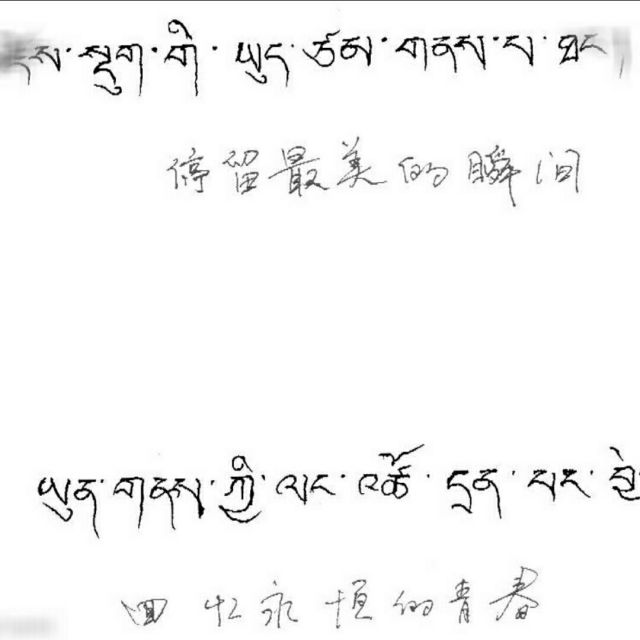 སྡུག་གི་ཡུད་ཙམ་གནས་པ་ཐང
停留最美的瞬间
ཡུན་གནས་ཀྱི་ལང་འཚོ་དྲན་པར་བྱེ
回忆永恒的青春